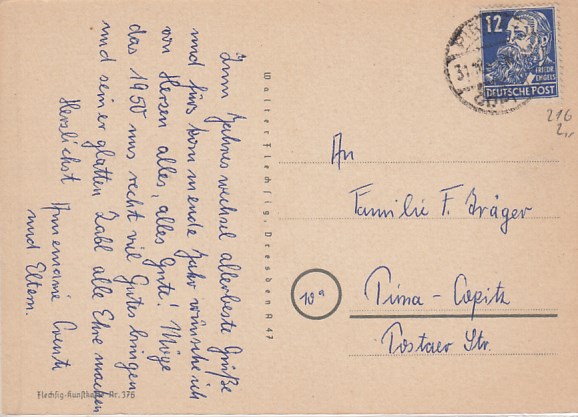 Zum Jahreswechsel allerbeste Grüße
und fürs kommende Jahr wünsche ich
von Herzen alles, alles Gute! Möge
das 1950 uns recht viel Gutes bringen
und seiner glatten Zahl alle Ehre machen
Herzlichst Annemarie
und Eltern.
Flechsig-Kunstkarte Nr. 376
Walter Flechsig, Dresden A 47
12
FRIEDR. ENGELS
DEUTSCHE POST
31.
216
2,-
An
Familie F. Träger
10a
Pirna-Copitz
Postaer Str.